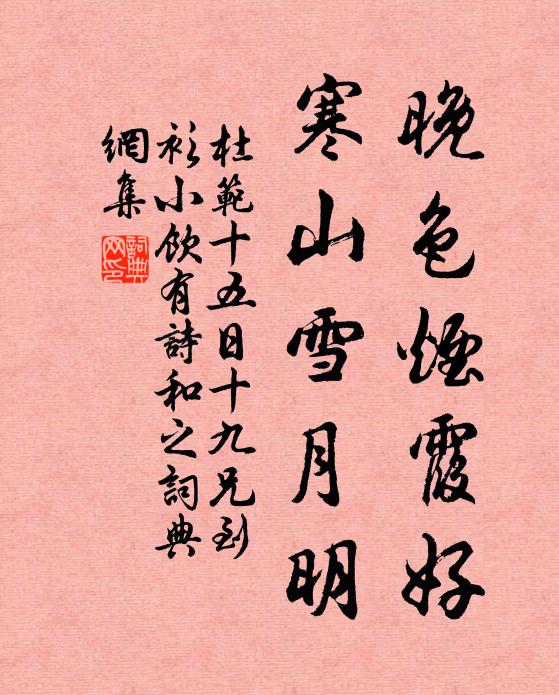 晚色煙霞好
寒山雪月明
杜範十五日十九兄到
衫小飲有詩和之詞典
網集
詞典網印